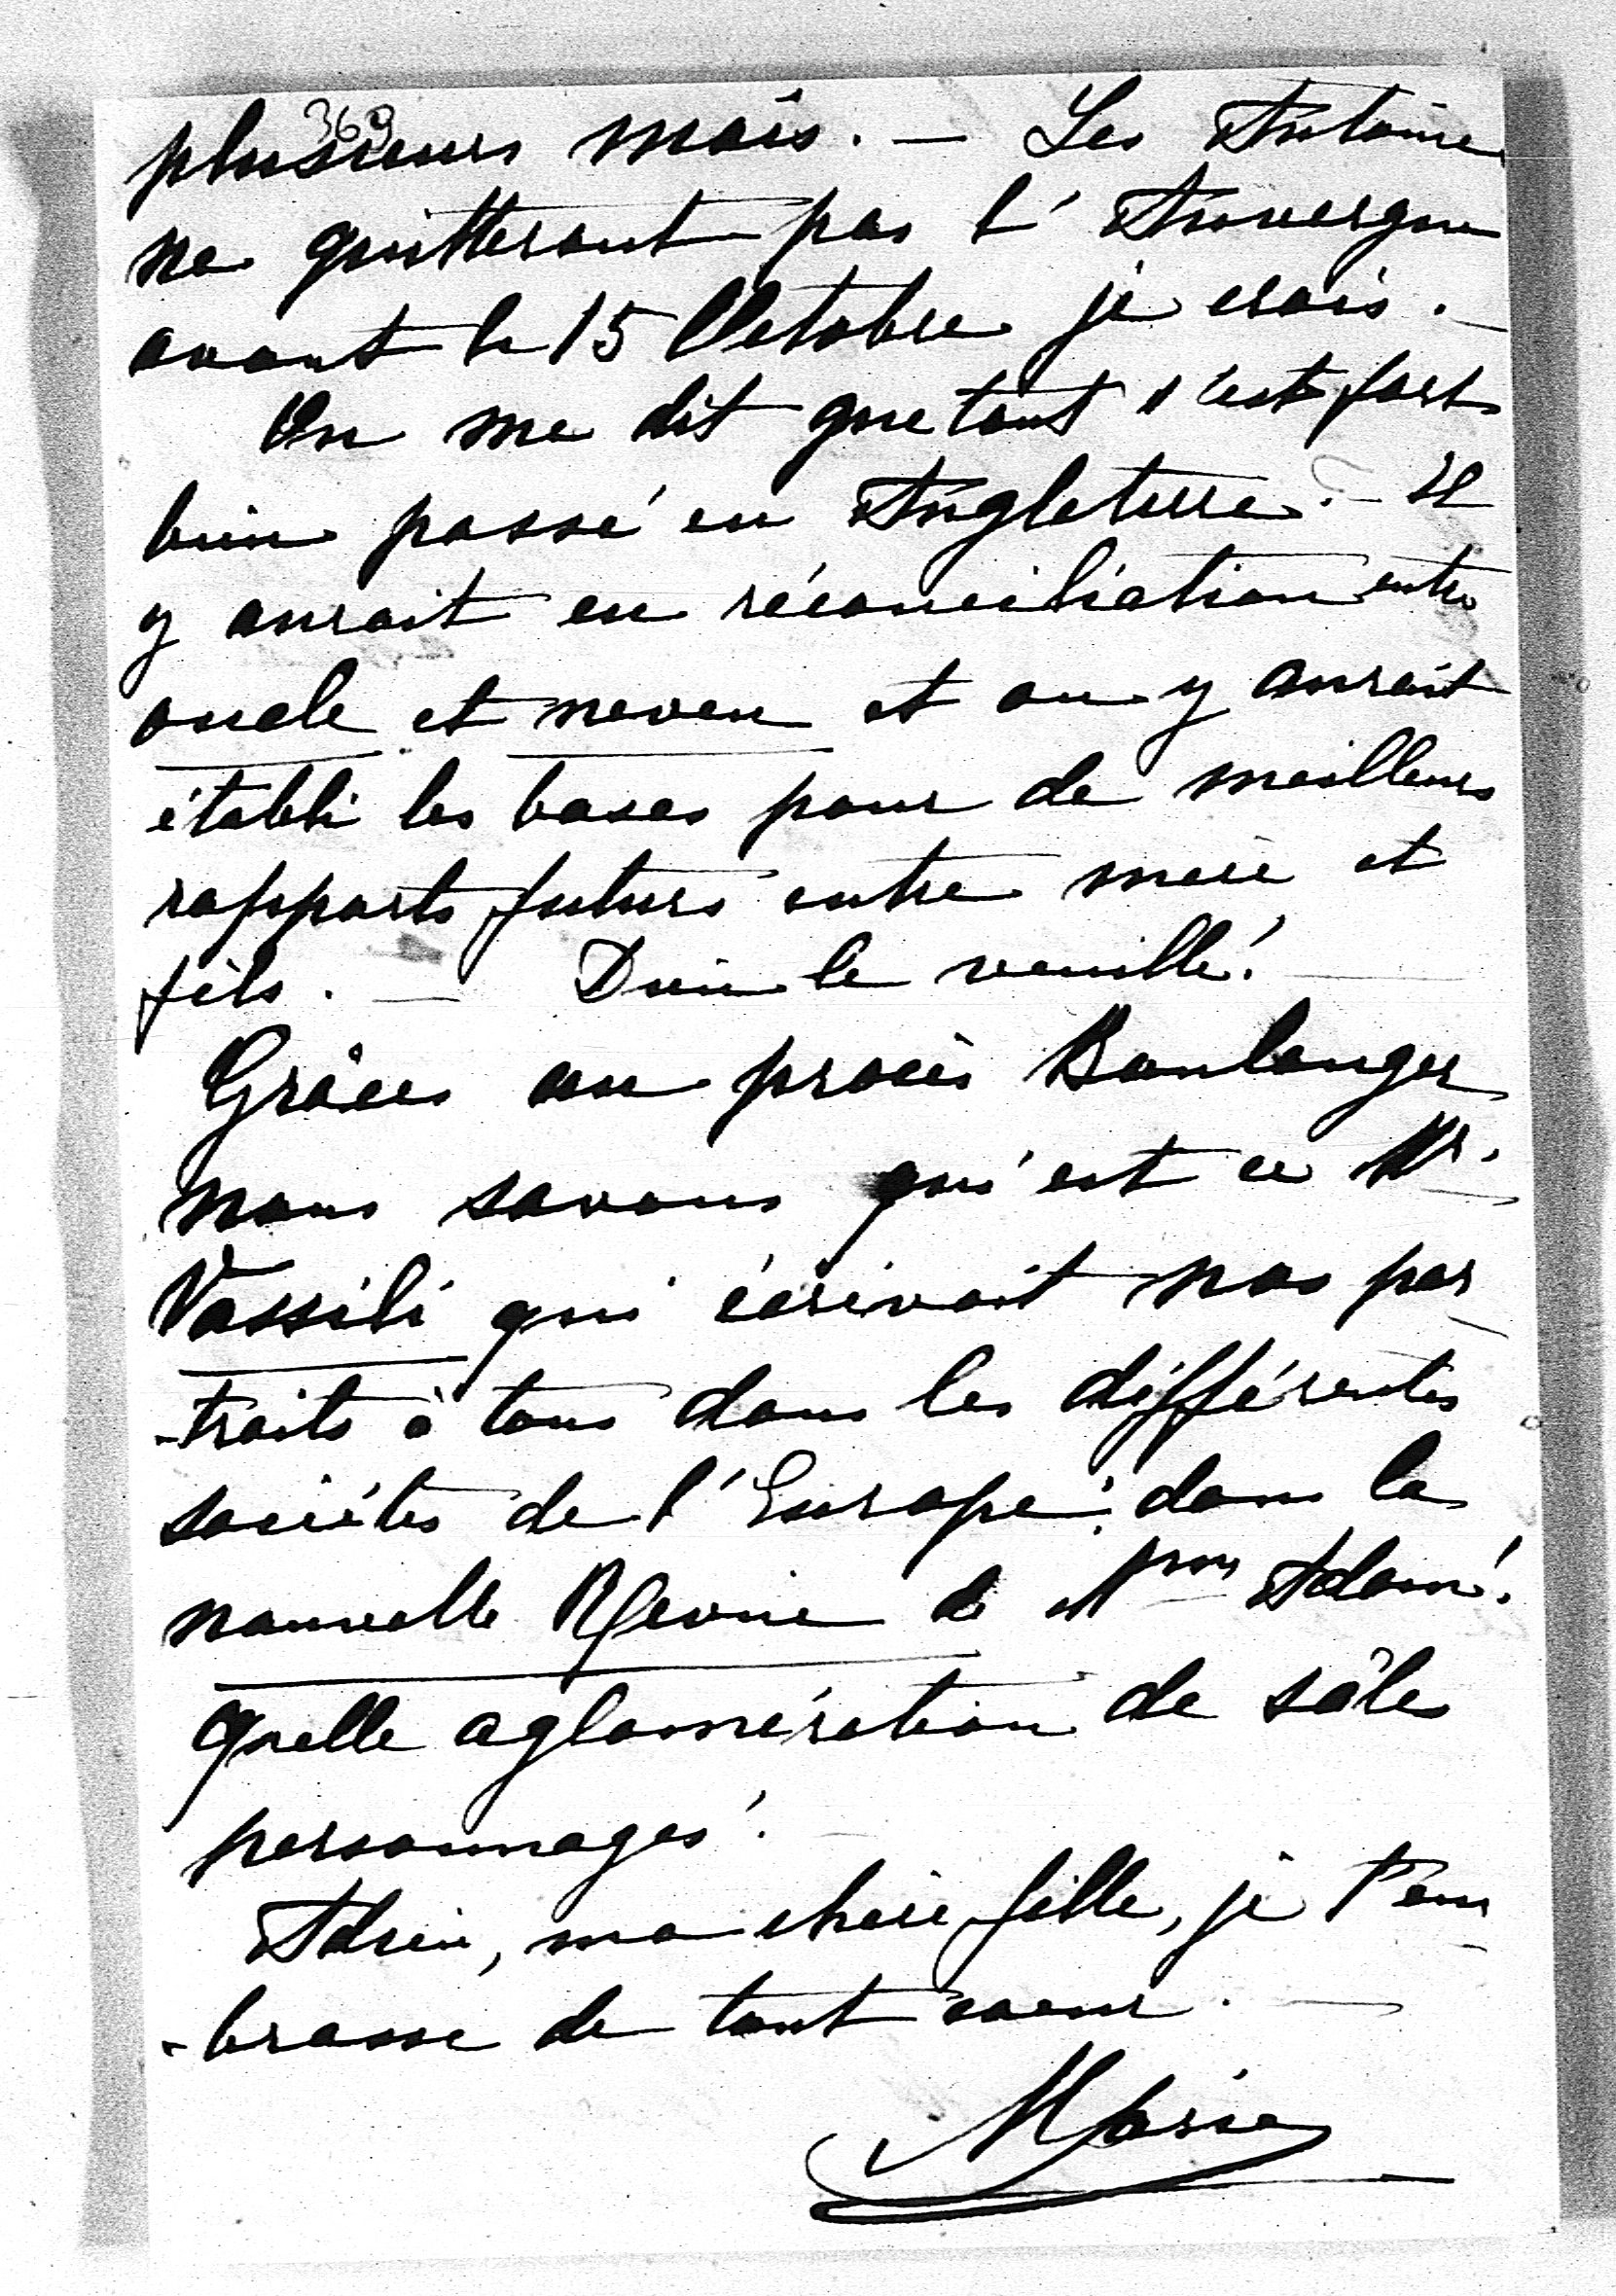 369
plusieurs mois. — Les Antoine
ne quitteront pas l'Auvergne
avant le 15 Octobre je crois. —
On me dit que tout s'est fort
bien passé en Angleterre. — Il
y aurait eu réconciliation entre
oncle et neveu et on y aurait
établi les bases pour de meilleurs
rapports futurs entre mère et
fils. — Dieu le veuille!
Grâces au procès Boulanger
nous savons qui est ce Mr.
Vassili qui écrivait nos por
-traits à tous dans les différentes
sociétés de l'Europe: dans la
nouvelle Revue de Mme Adam!
quelle aglomération de sâles
personnages!
Adieu, ma chère fille, je t'em
-brasse de tout coeur. —
Marie